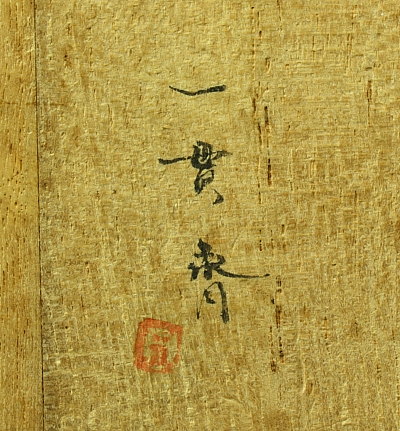 一貫斎